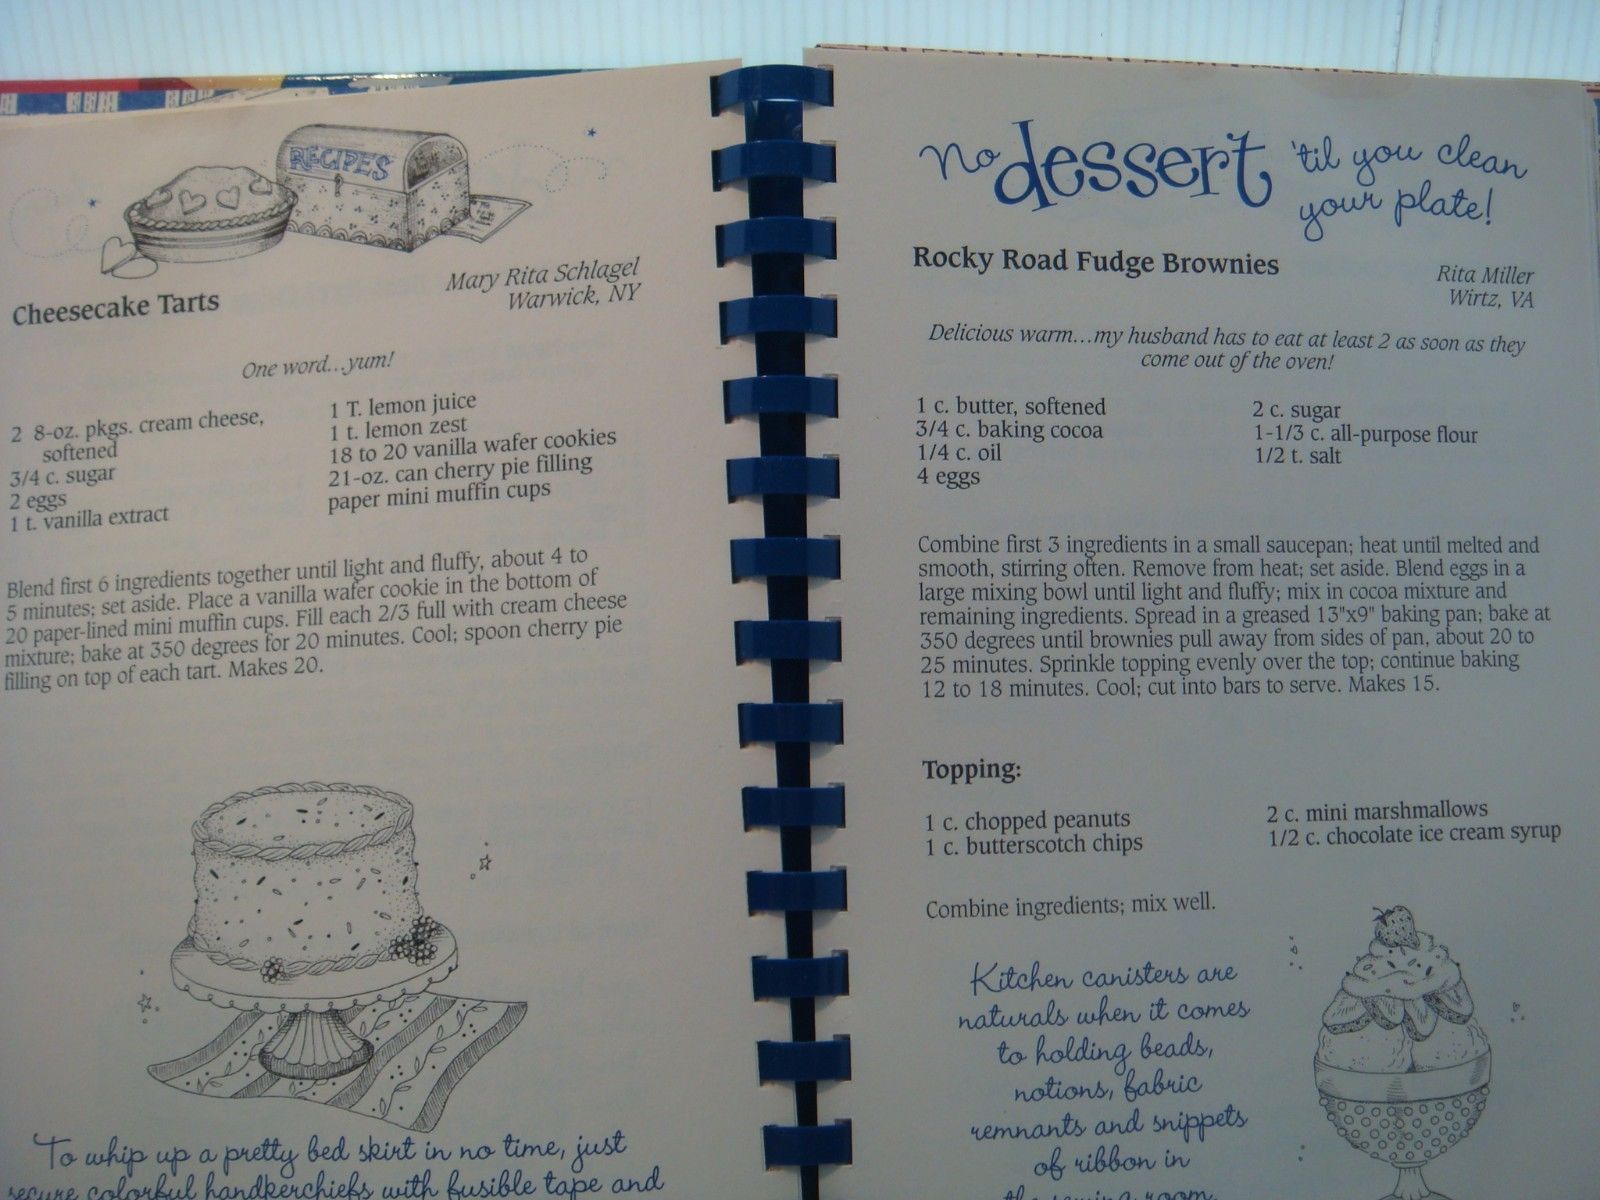 RECIPES
Cheesecake Tarts
Mary Rita Schlagel
Warwick, NY
One word...yum!
2 8-oz. pkgs. cream cheese,
softened
3/4 c. sugar
2 eggs
1 t. vanilla extract
1 T. lemon juice
1 t. lemon zest
18 to 20 vanilla wafer cookies
21-oz. can cherry pie filling
paper mini muffin cups
Blend first 6 ingredients together until light and fluffy, about 4 to
5 minutes; set aside. Place a vanilla wafer cookie in the bottom of
20 paper-lined mini muffin cups. Fill each 2/3 full with cream cheese
mixture; bake at 350 degrees for 20 minutes. Cool; spoon cherry pie
filling on top of each tart. Makes 20.
To whip up a pretty bed skirt in no time, just
secure colorful handkerchiefs with fusible tape and
No dessert 'til you clean
your plate!
Rocky Road Fudge Brownies
Rita Miller
Wirtz, VA
Delicious warm...my husband has to eat at least 2 as soon as they
come out of the oven!
1 c. butter, softened
3/4 c. baking cocoa
1/4 c. oil
4 eggs
2 c. sugar
1-1/3 c. all-purpose flour
1/2 t. salt
Combine first 3 ingredients in a small saucepan; heat until melted and
smooth, stirring often. Remove from heat; set aside. Blend eggs in a
large mixing bowl until light and fluffy; mix in cocoa mixture and
remaining ingredients. Spread in a greased 13"x9" baking pan; bake at
350 degrees until brownies pull away from sides of pan, about 20 to
25 minutes. Sprinkle topping evenly over the top; continue baking
12 to 18 minutes. Cool; cut into bars to serve. Makes 15.
Topping:
1 c. chopped peanuts
1 c. butterscotch chips
2 c. mini marshmallows
1/2 c. chocolate ice cream syrup
Combine ingredients; mix well.
Kitchen canisters are
naturals when it comes
to holding beads,
notions, fabric
remnants and snippets
of ribbon in
the sewing room.